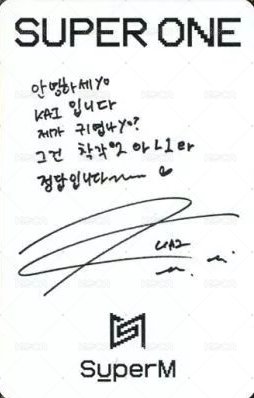 SUPER ONE
안녕하세요
KAI 입니다
제가 귀엽나요?
그건 착각이 아니라
정답입니다~~ ♥
KAI
SuperM